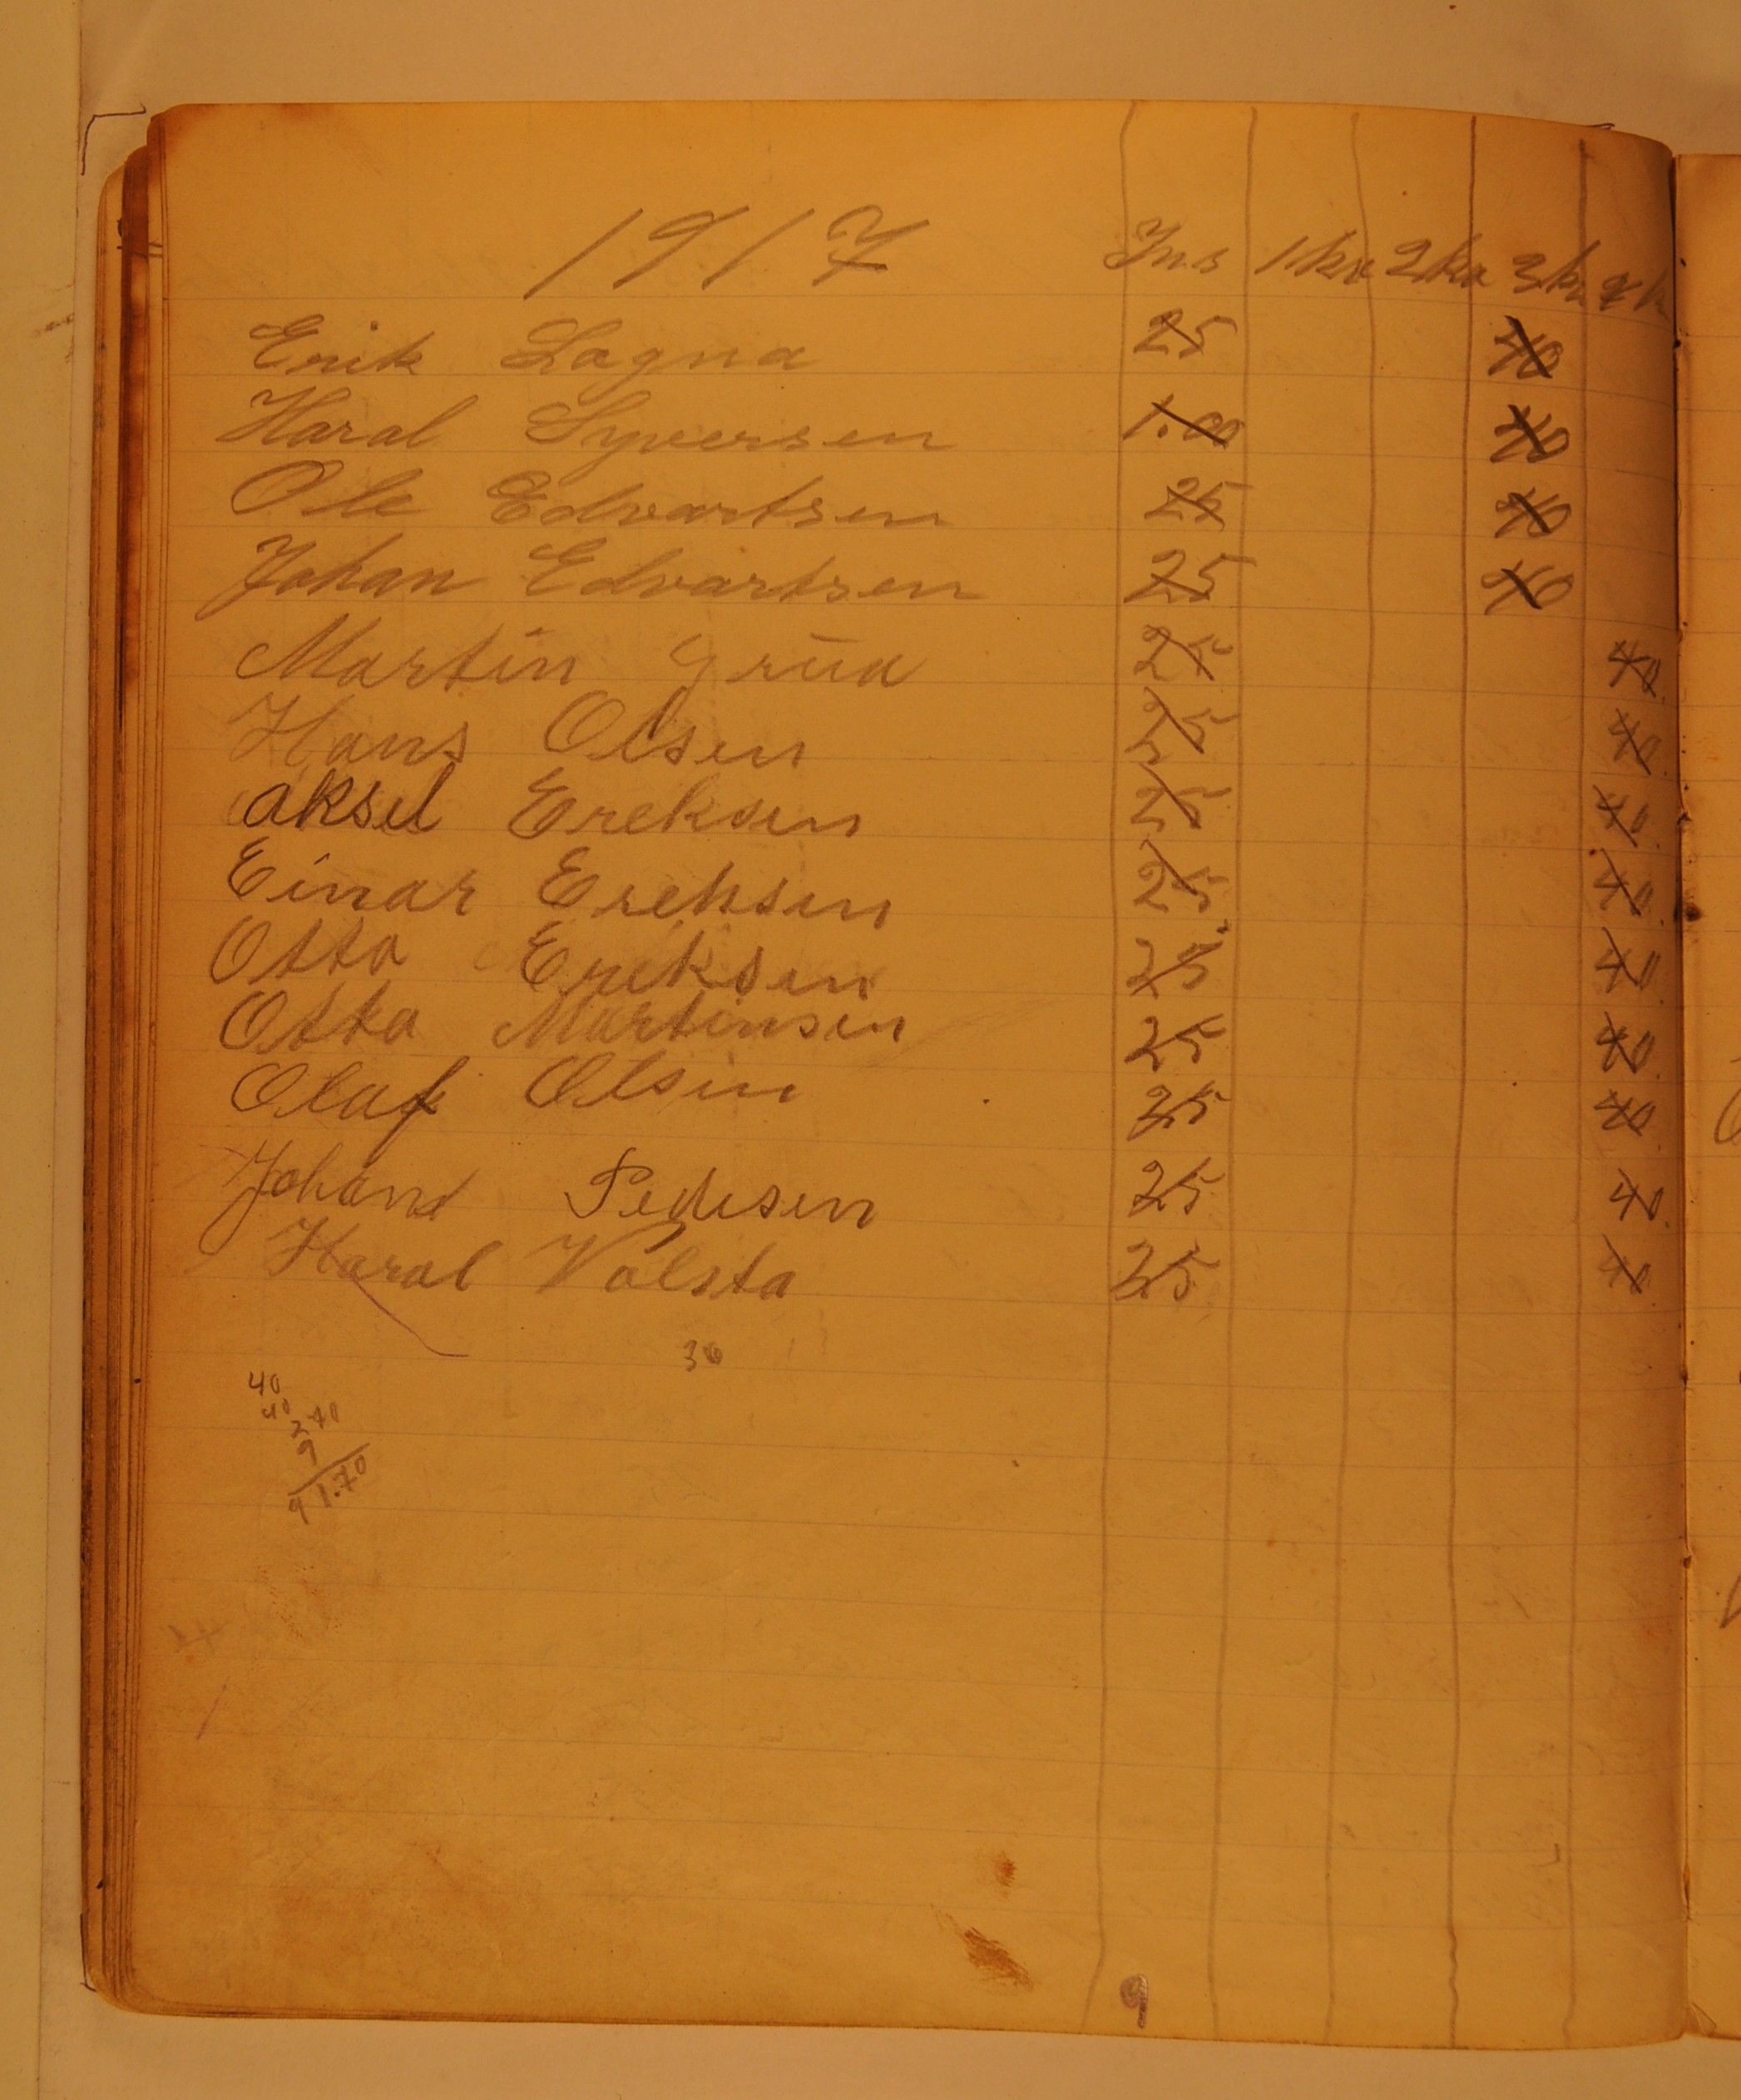 1917 Ins 1 kv 2 kv 3 kv 4 k
Erik Lagna 25 40
Haral Syversen 1.00 40
Ole Edvartsen 25 40
Johan Edvartsen 25 40
Martin Grua 25 40
Hans Olsen 25 40
aksel Ereksen 25 40
Einar Ereksen 25 40
Otto Eriksen 25 40
Otto Martinsen 25 40
Olaf Olsen 25 40
Johan Pedesen 25 40
Haral Volsta 25 40
30
40
40
240
9
9 1.70
9